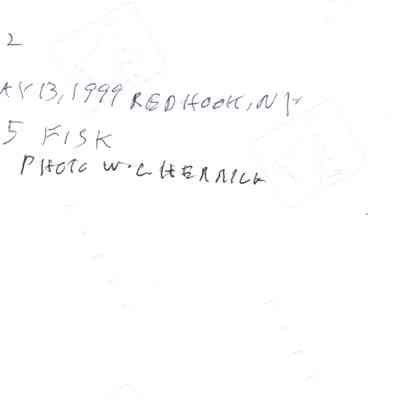 2
AY 13, 1999 RED HOOK, NY
5 FISK
PHOTO W.C HERRICK